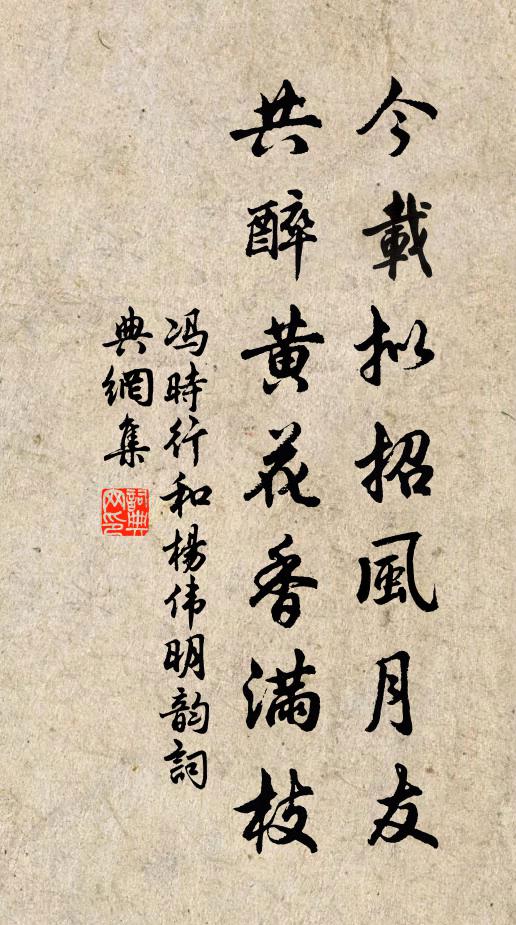 今載拟招風月友
共醉黄花香滿枝
冯時行和楊伟明韵詞
典網集
詞典网印